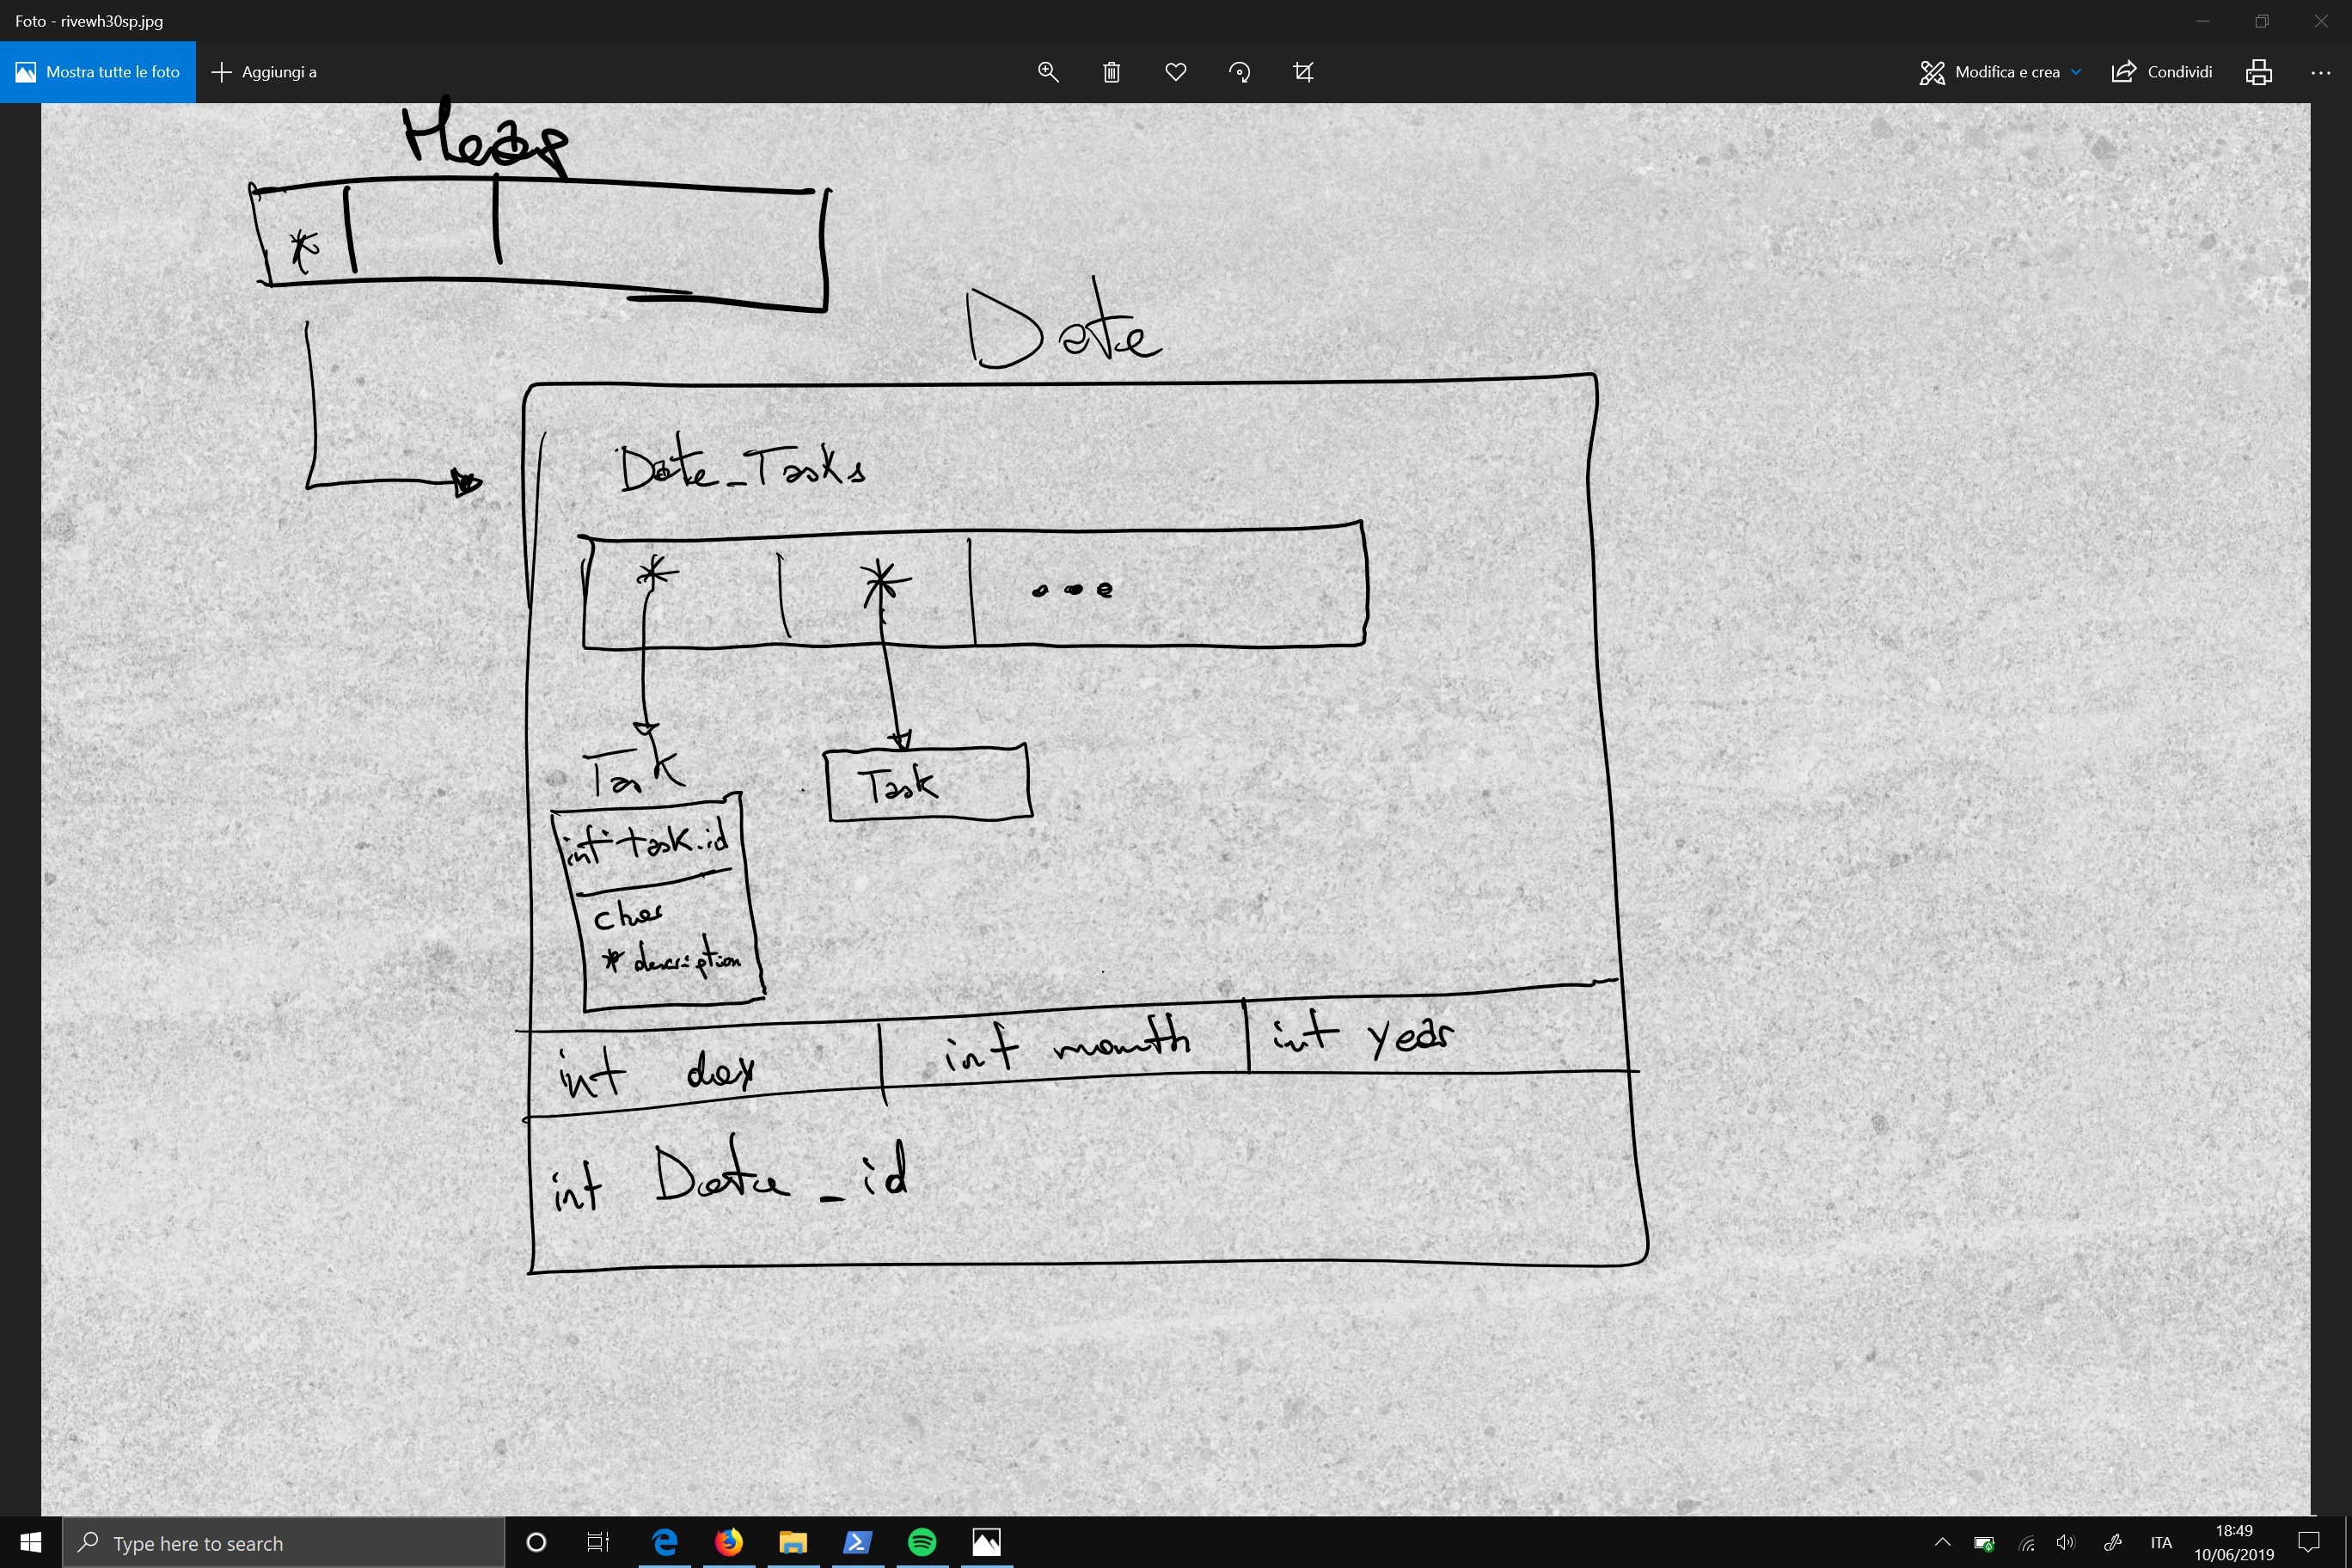 Foto - rivewh30sp.jpg
Mostra tutte le foto
Aggiungi a
Modifica e crea
Condividi
Heap
*
Date
Date_Tasks
* * ...
Task
Task
int task_id
char
* description
int day
int month
int year
int Date_id
Type here to search
ITA
18:49
10/06/2019